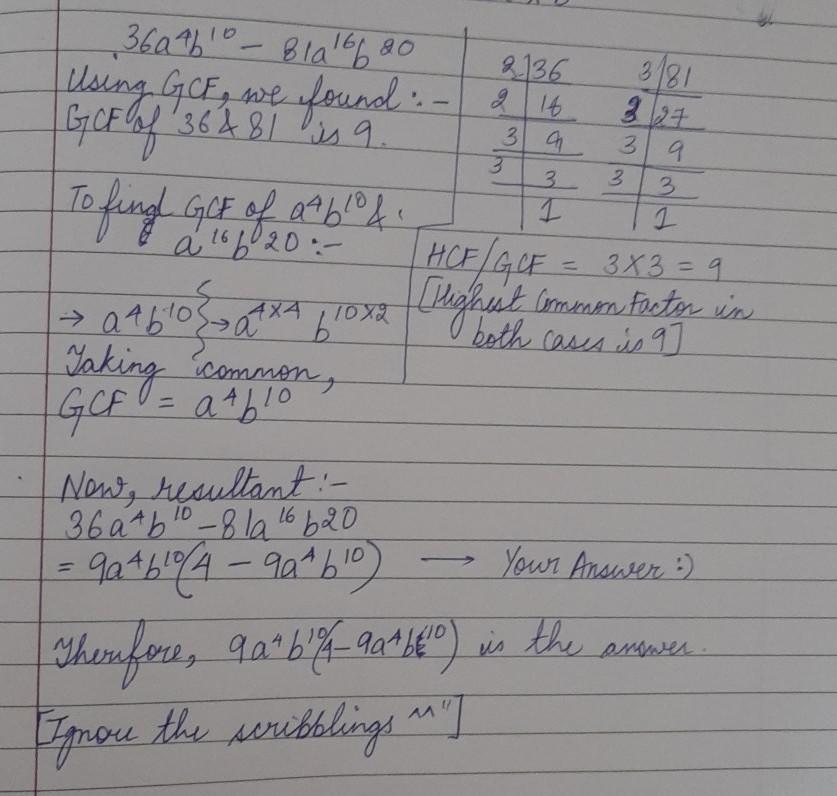 36a⁴b¹⁰ - 81a¹⁶b²⁰
Using GCF, we found :-
GCF of 36 & 81 is 9.
To find GCF of a⁴b¹⁰ &
a¹⁶b²⁰ :-
→ a⁴b¹⁰ } → a⁴ˣ⁴ b¹⁰ˣ²
Taking common,
GCF = a⁴b¹⁰
2 | 36
2 | 18
3 | 9
3 | 3
1
3 | 81
3 | 27
3 | 9
3 | 3
1
HCF/GCF = 3×3 = 9
[Highest Common Factor in
both cases is 9]
Now, resultant :-
36a⁴b¹⁰ - 81a¹⁶b20
= 9a⁴b¹⁰(4 - 9a⁴b¹⁰) → Your Answer :)
Therefore, 9a⁴b¹⁰(4 - 9a⁴b¹⁰) is the answer.
[Ignore the scribblings ^^"]